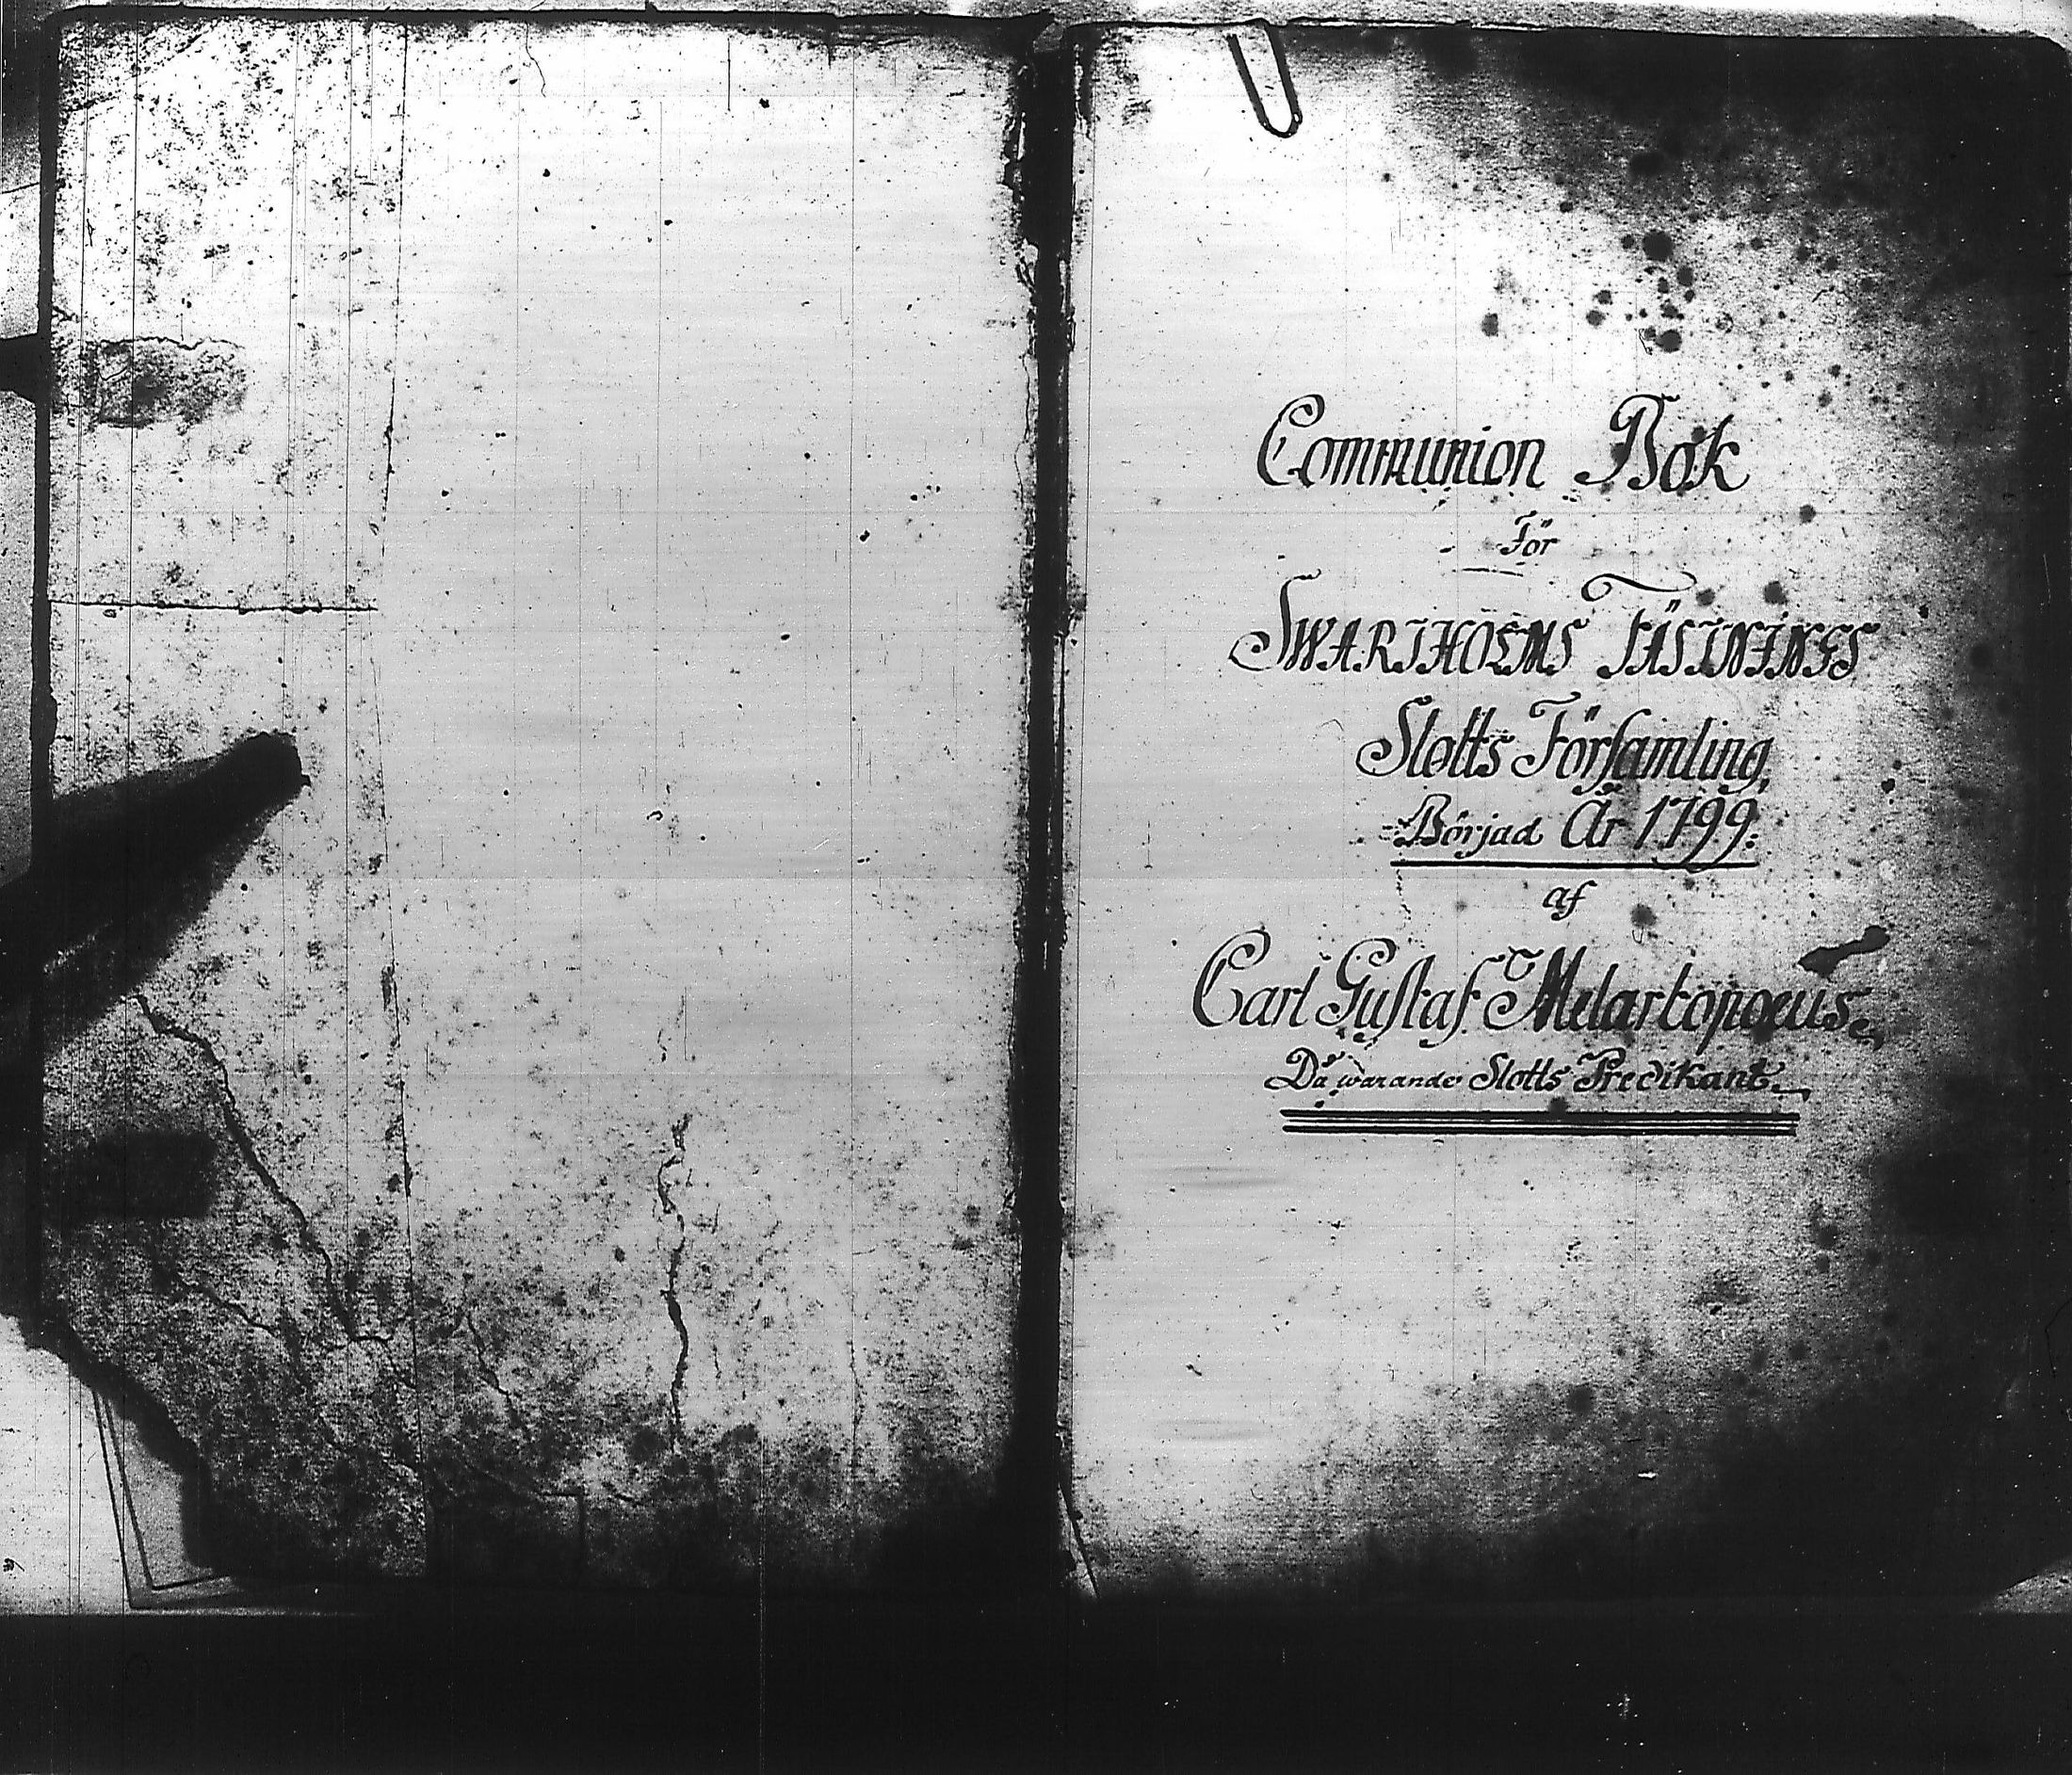 Communion Bok
För
SWARTHOLMS FÄSTNINGS
Slotts Församling,
Börjad År 1799.
af
Carl Gustaf Melartopoeus.
Då warande Slotts Predikant.